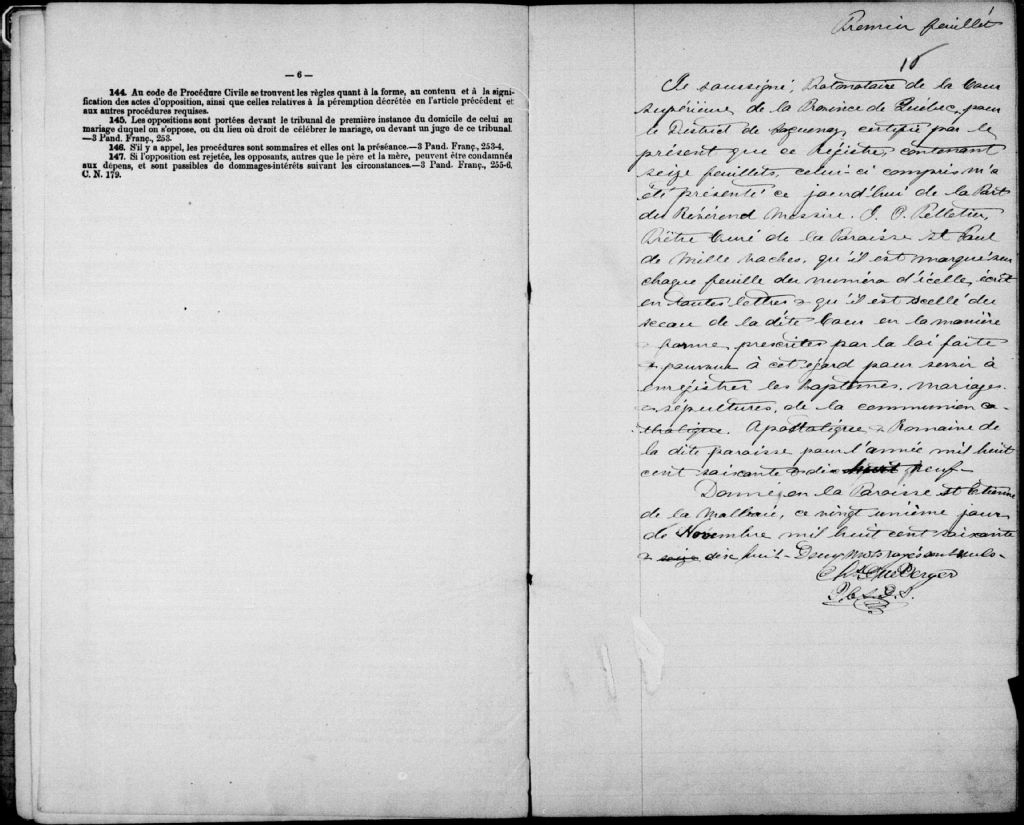 — 6 —
144. Au code de Procédure Civile se trouvent les règles quant à la forme, au contenu et à la signi-
fication des actes d'opposition, ainsi que celles relatives à la péremption décrétée en l'article précédent et
aux autres procédures requises.
145. Les oppositions sont portées devant le tribunal de première instance du domicile de celui au
mariage duquel on s'oppose, ou du lieu où droit de célébrer le mariage, ou devant un juge de ce tribunal.
—3 Pand. Franç., 253.
146. S'il y a appel, les procédures sont sommaires et elles ont la préséance.—3 Pand. Franç., 253-4.
147. Si l'opposition est rejetée, les opposants, autres que le père et la mère, peuvent être condamnés
aux dépens, et sont passibles de dommages-intérêts suivant les circonstances.—3 Pand. Franç., 255-6.
C. N. 179.
Premier feuillet
Je soussigné, Protonotaire de la Cour
Supérieure de la Province de Québec, pour
le District de Saguenay, certifie par le
présent que ce Registre, contenant
seize feuillets, celui-ci compris m'a
été présenté ce jourd'hui de la Part
du Révérend Messire J. O. Pelletier,
Prêtre Curé de la Paroisse St Paul
de Mille Vaches, qu'il est marqué sur
chaque feuille du numéro d'icelle, écrit
en toutes lettres & qu'il est scellé du
sceau de la dite Cour en la manière
& forme prescrites par la loi faite
& pourvue à cet égard pour servir à
enregistrer les baptêmes, mariages
& sépultures, de la communion ca-
tholique. Apostolique & Romaine de
la dite paroisse pour l'année mil huit
cent soixante & dix huit neuf
Donné, en la Paroisse St Etienne
de la Malbaie, ce vingt unième jour
de Novembre mil huit cent soixante
& seize dix huit - Deux mots rayés sont nuls -
Chs DuBerger
P. C. S. D. S.